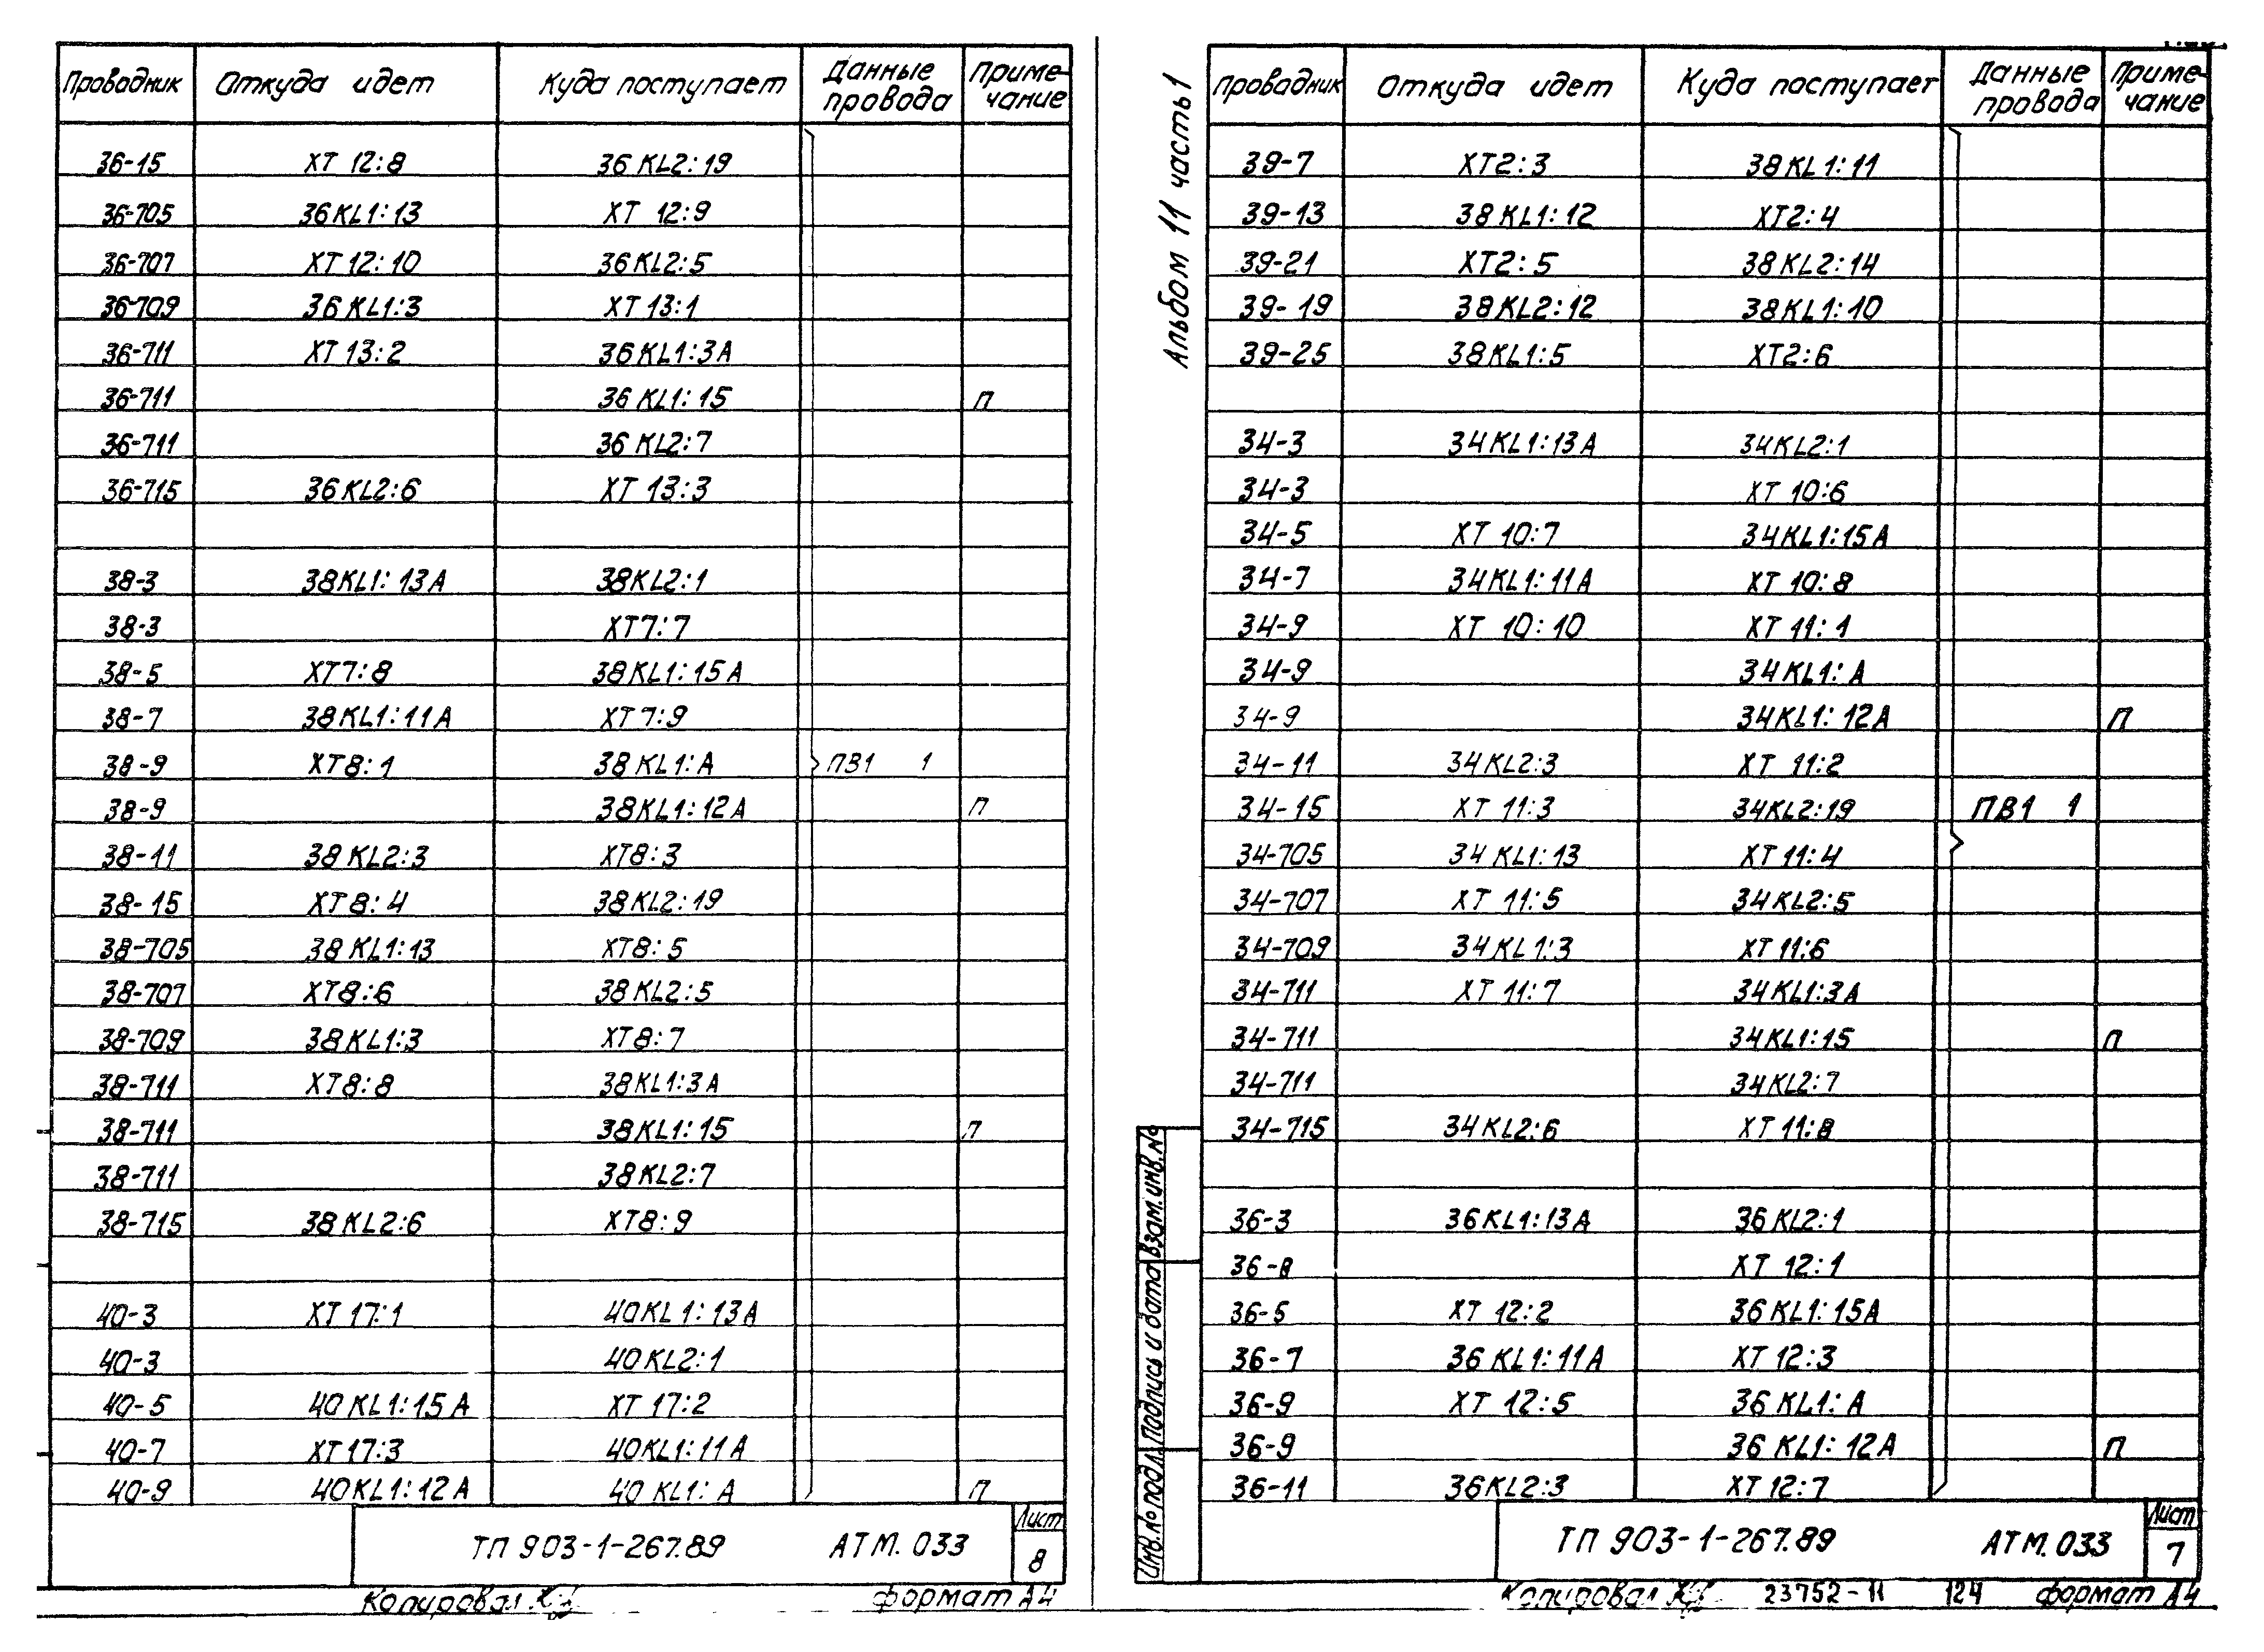 Проводник Откуда идет Куда поступает Данные провода Приме-чание
36-15 XT 12:8 36KL2:19
36-705 36KL1:13 XT 12:9
36-707 XT12:10 36KL2:5
36-709 36KL1:3 XT13:1
36-711 XT13:2 36KL1:3A
36-711 36KL1:15 П
36-711 36KL2:7
36-715 36KL2:6 XT 13:3
38-3 38KL1:13A 38KL2:1
38-3 XT7:7
38-5 XT7:8 38KL1:15A
38-7 38KL1:11A XT7:9
38-9 XT8:1 38KL1:A ПВ1 1
38-9 38KL1:12A П
38-11 38KL2:3 XT8:3
38-15 XT8:4 38KL2:19
38-705 38KL1:13 XT8:5
38-707 XT8:6 38KL2:5
38-709 38KL1:3 XT8:7
38-711 XT8:8 38KL1:3A
38-711 38KL1:15 П
38-711 38KL2:7
38-715 38KL2:6 XT8:9
40-3 XT17:1 40KL1:13A
40-3 40KL2:1
40-5 40KL1:15A XT17:2
40-7 XT17:3 40KL1:11A
40-9 40KL1:12A 40KL1:A П
ТП 903-1-267.89 АТМ.033 Лист 8
Копировал формат А4
Альбом 11 часть 1
Проводник Откуда идет Куда поступает Данные провода Приме-чание
39-7 XT2:3 38KL1:11
39-13 38KL1:12 XT2:4
39-21 XT2:5 38KL2:14
39-19 38KL2:12 38KL1:10
39-25 38KL1:5 XT2:6
34-3 34KL1:13A 34KL2:1
34-3 XT 10:6
34-5 XT 10:7 34KL1:15A
34-7 34KL1:11A XT 10:8
34-9 XT 10:10 XT 11:1
34-9 34KL1:A
34-9 34KL1:12A П
34-11 34KL2:3 XT 11:2
34-15 XT 11:3 34KL2:19 ПВ1 1
34-705 34KL1:13 XT11:4
34-707 XT 11:5 34KL2:5
34-709 34KL1:3 XT11:6
34-711 XT 11:7 34KL1:3A
34-711 34KL1:15 П
34-711 34KL2:7
34-715 34KL2:6 XT11:8
36-3 36KL1:13A 36KL2:1
36-8 XT 12:1
36-5 XT 12:2 36KL1:15A
36-7 36KL1:11A XT12:3
36-9 XT 12:5 36KL1:A
36-9 36KL1:12A П
36-11 36KL2:3 XT12:7
Инв.№ подл. Подпись и дата Взам.инв.№
ТП 903-1-267.89 АТМ.033 Лист 7
Копировал 23752-11 124 формат А4